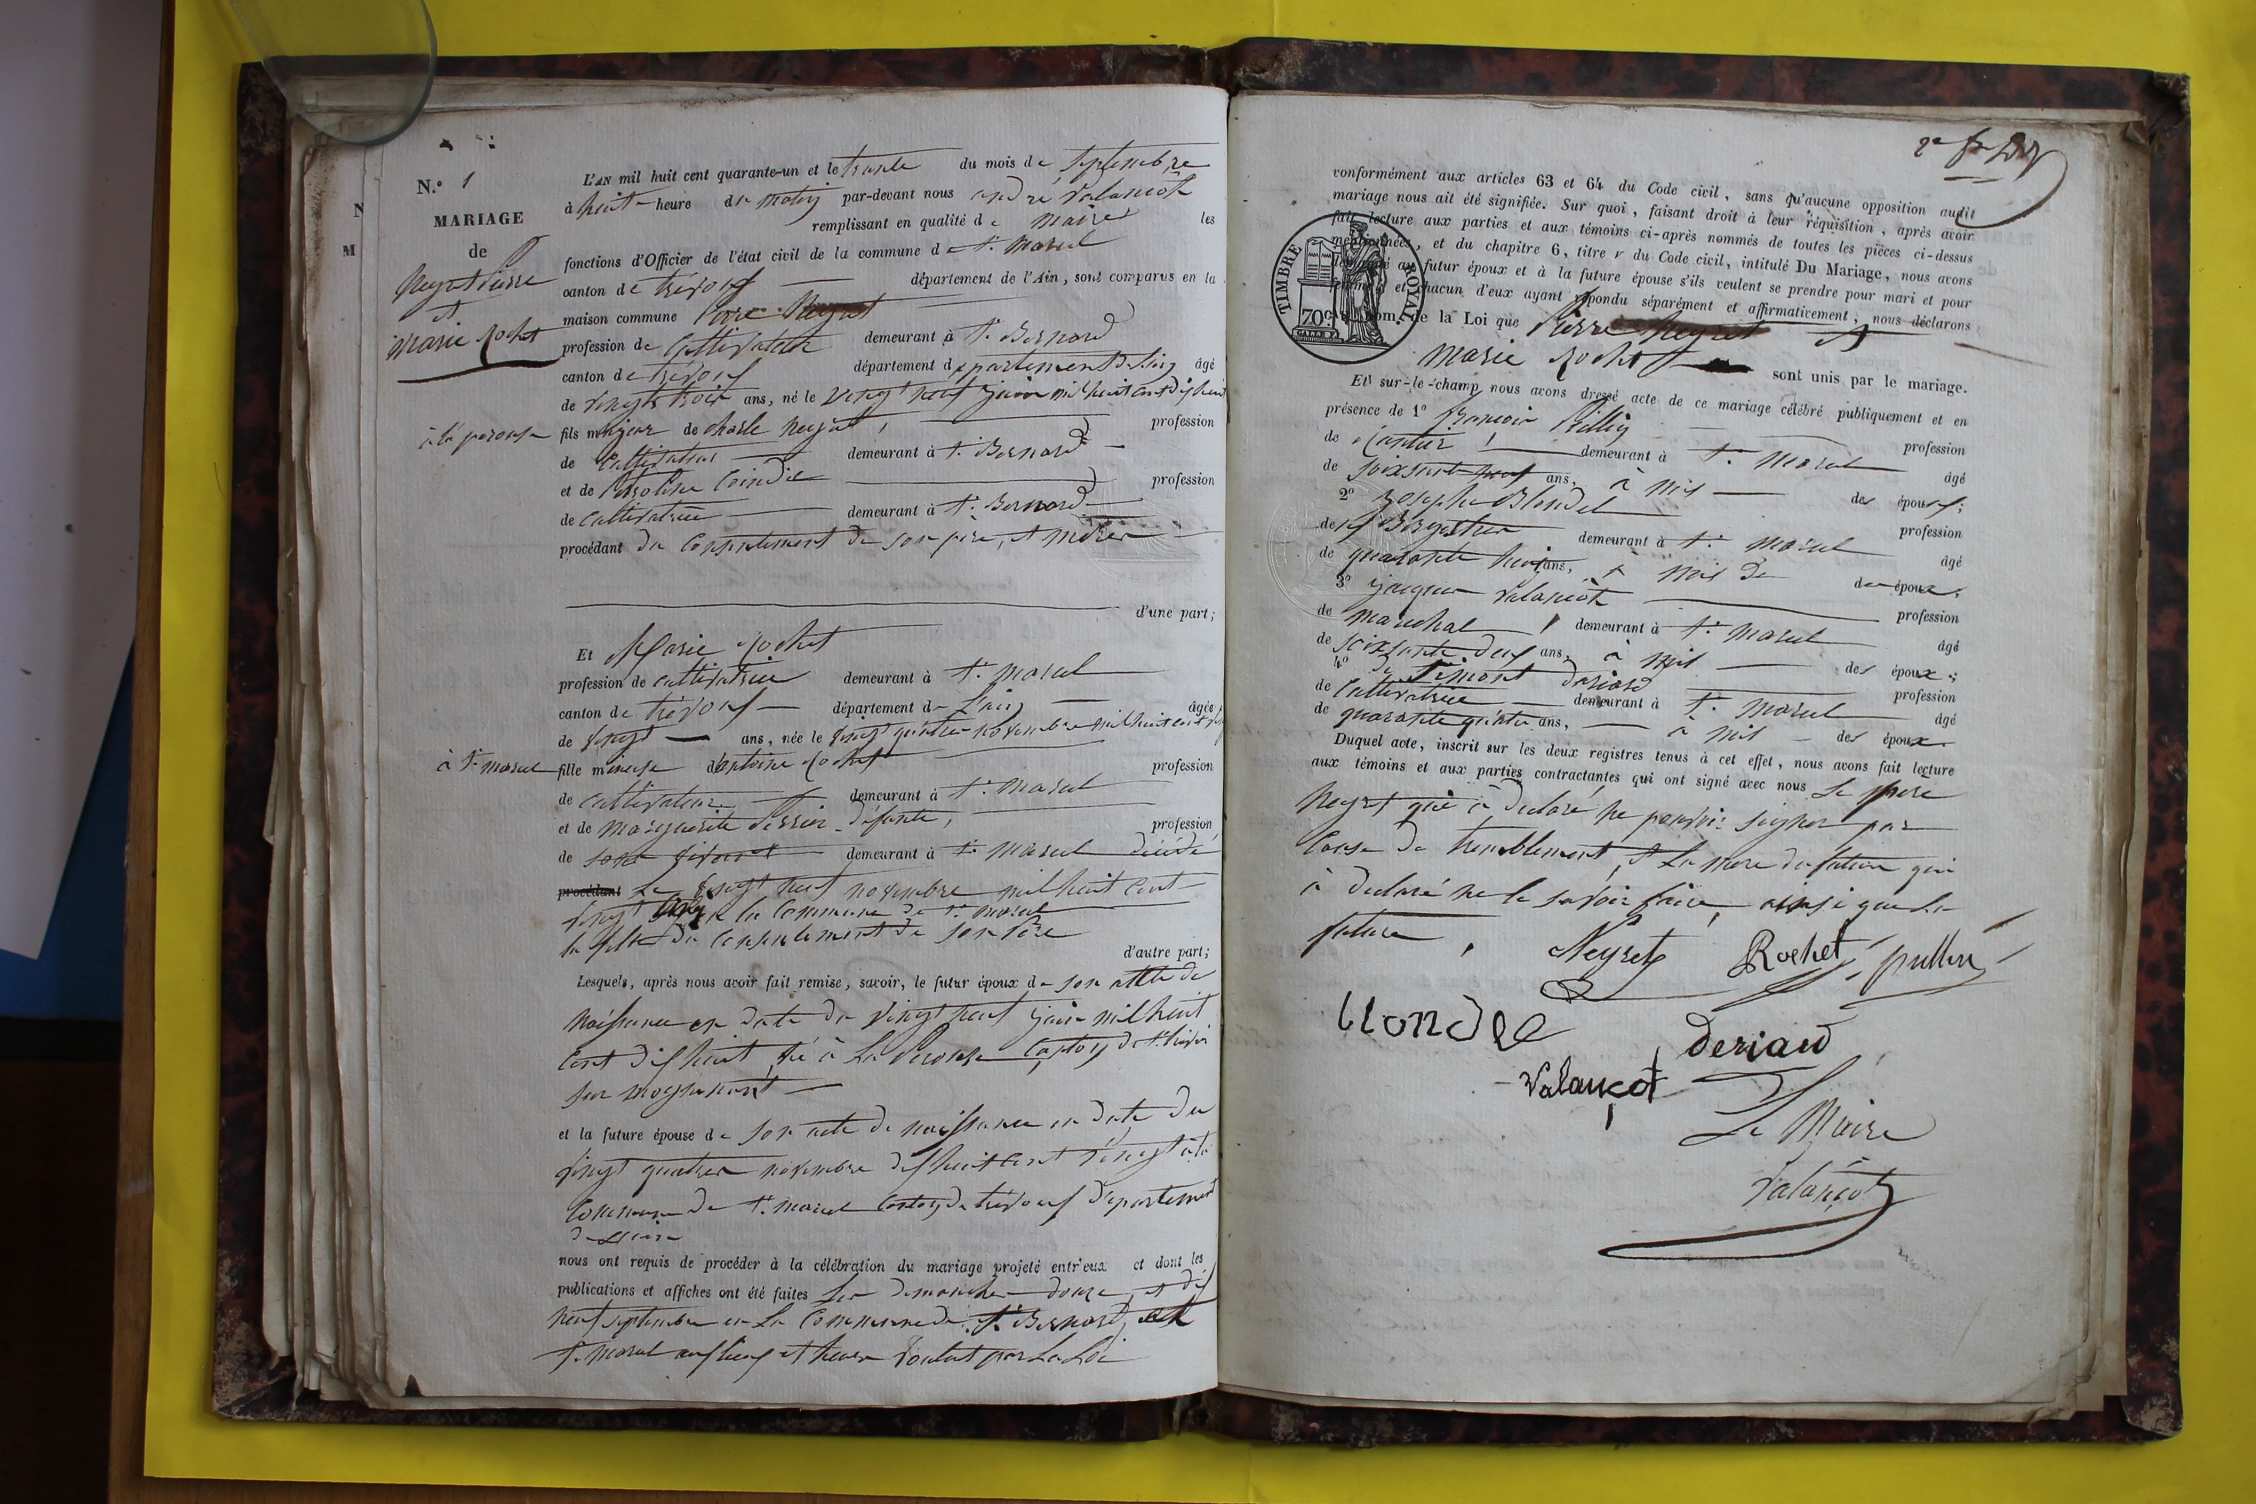 N.º 1
MARIAGE
de
Neyret Pierre
et
Marie Rochet
L'AN mil huit cent quarante-un et le trente du mois de septembre
à huit heure du matin par-devant nous andré Valançot
remplissant en qualité de maire les
fonctions d'Officier de l'état civil de la commune de St. Marcel
canton de trévoux département de l'Ain, sont comparus en la
maison commune Pierre Neyret
profession de Cultivateur demeurant à St. Bernard
canton de trévoux département departement de lain âgé
de vingt trois ans, né le vingt neuf juin mil huit cent dix huit
à la perouse fils majeur de charle neyret, profession
de Cultivateur demeurant à St. Bernard
et de profession
de Cultivatrice demeurant à St. Bernard
procédant du Consentement de son père, et mère
d'une part;
Et Marie Rochet
profession de cultivatrice demeurant à St. Marcel
canton de trévoux département de Lain âgée
de vingt ans, née le vingt quatre novembre mil huit cent
à St. marcel fille mineure dantoine Rochet profession
de cultivateur demeurant à St. Marcel
et de marguerite défunte, profession
de son vivant demeurant à St. Marcel décédé
procédant Le vingt huit novembre mil huit cent
vingt la Commune de St. Marcel
du Consentement de son Père
d'autre part;
Lesquels, après nous avoir fait remise, savoir, le futur époux de son acte de
Naissance en date du vingt neuf juin mil huit
Cent dix huit, né à La Perouse Canton de St.
sur
et la future épouse de son acte de naissance en date du
vingt quatre novembre dix huit cent vingt à la
Commune de St. Marcel Canton de trévoux département
de Lain
nous ont requis de procéder à la célébration du mariage projeté entr'eux et dont les
publications et affiches ont été faites Les dimanches douze, et dix
neuf septembre en La Commune de St. Bernard, et
St. Marcel aux lieux et heures voulut par La Loi
conformément aux articles 63 et 64 du Code civil, sans qu'aucune opposition audit
mariage nous ait été signifiée. Sur quoi, faisant droit à leur réquisition, après avoir
fait lecture aux parties et aux témoins ci-après nommés de toutes les pièces ci-dessus
mentionnées, et du chapitre 6, titre v du Code civil, intitulé Du Mariage, nous avons
demandé au futur époux et à la future épouse s'ils veulent se prendre pour mari et pour
femme et chacun d'eux ayant répondu séparément et affirmativement, nous déclarons
TIMBRE ROYAL
70c
nom de la Loi que Pierre Neyret et
Marie Rochet sont unis par le mariage.
Et sur-le-champ nous avons dressé acte de ce mariage célébré publiquement et en
présence de 1º
de Rentier demeurant à St. Marcel profession
de soixante neuf ans, à mis des époux;
2º Joseph Blondel âgé
de demeurant à St. Marcel profession
de quarante huit ans, mis de des époux;
3º jacques Valançot âgé
de marechal demeurant à St. Marcel profession
de soixante deux ans, à mis des époux;
4º de Simont Deriard âgé
de Cultivatrice demeurant à St. Marcel profession
de quarante quatre ans, à mis des époux âgé
Duquel acte, inscrit sur les deux registres tenus à cet effet, nous avons fait lecture
aux témoins et aux parties contractantes qui ont signé avec nous Le père
Neyret qui à déclaré ne pouvoir signer par
Cause de tremblement, et La mere du futur qui
à declaré ne le savoir faire, ainsi que La
future,
Neyret Rochet
Deriard
Valançot
Le Maire
Valançot